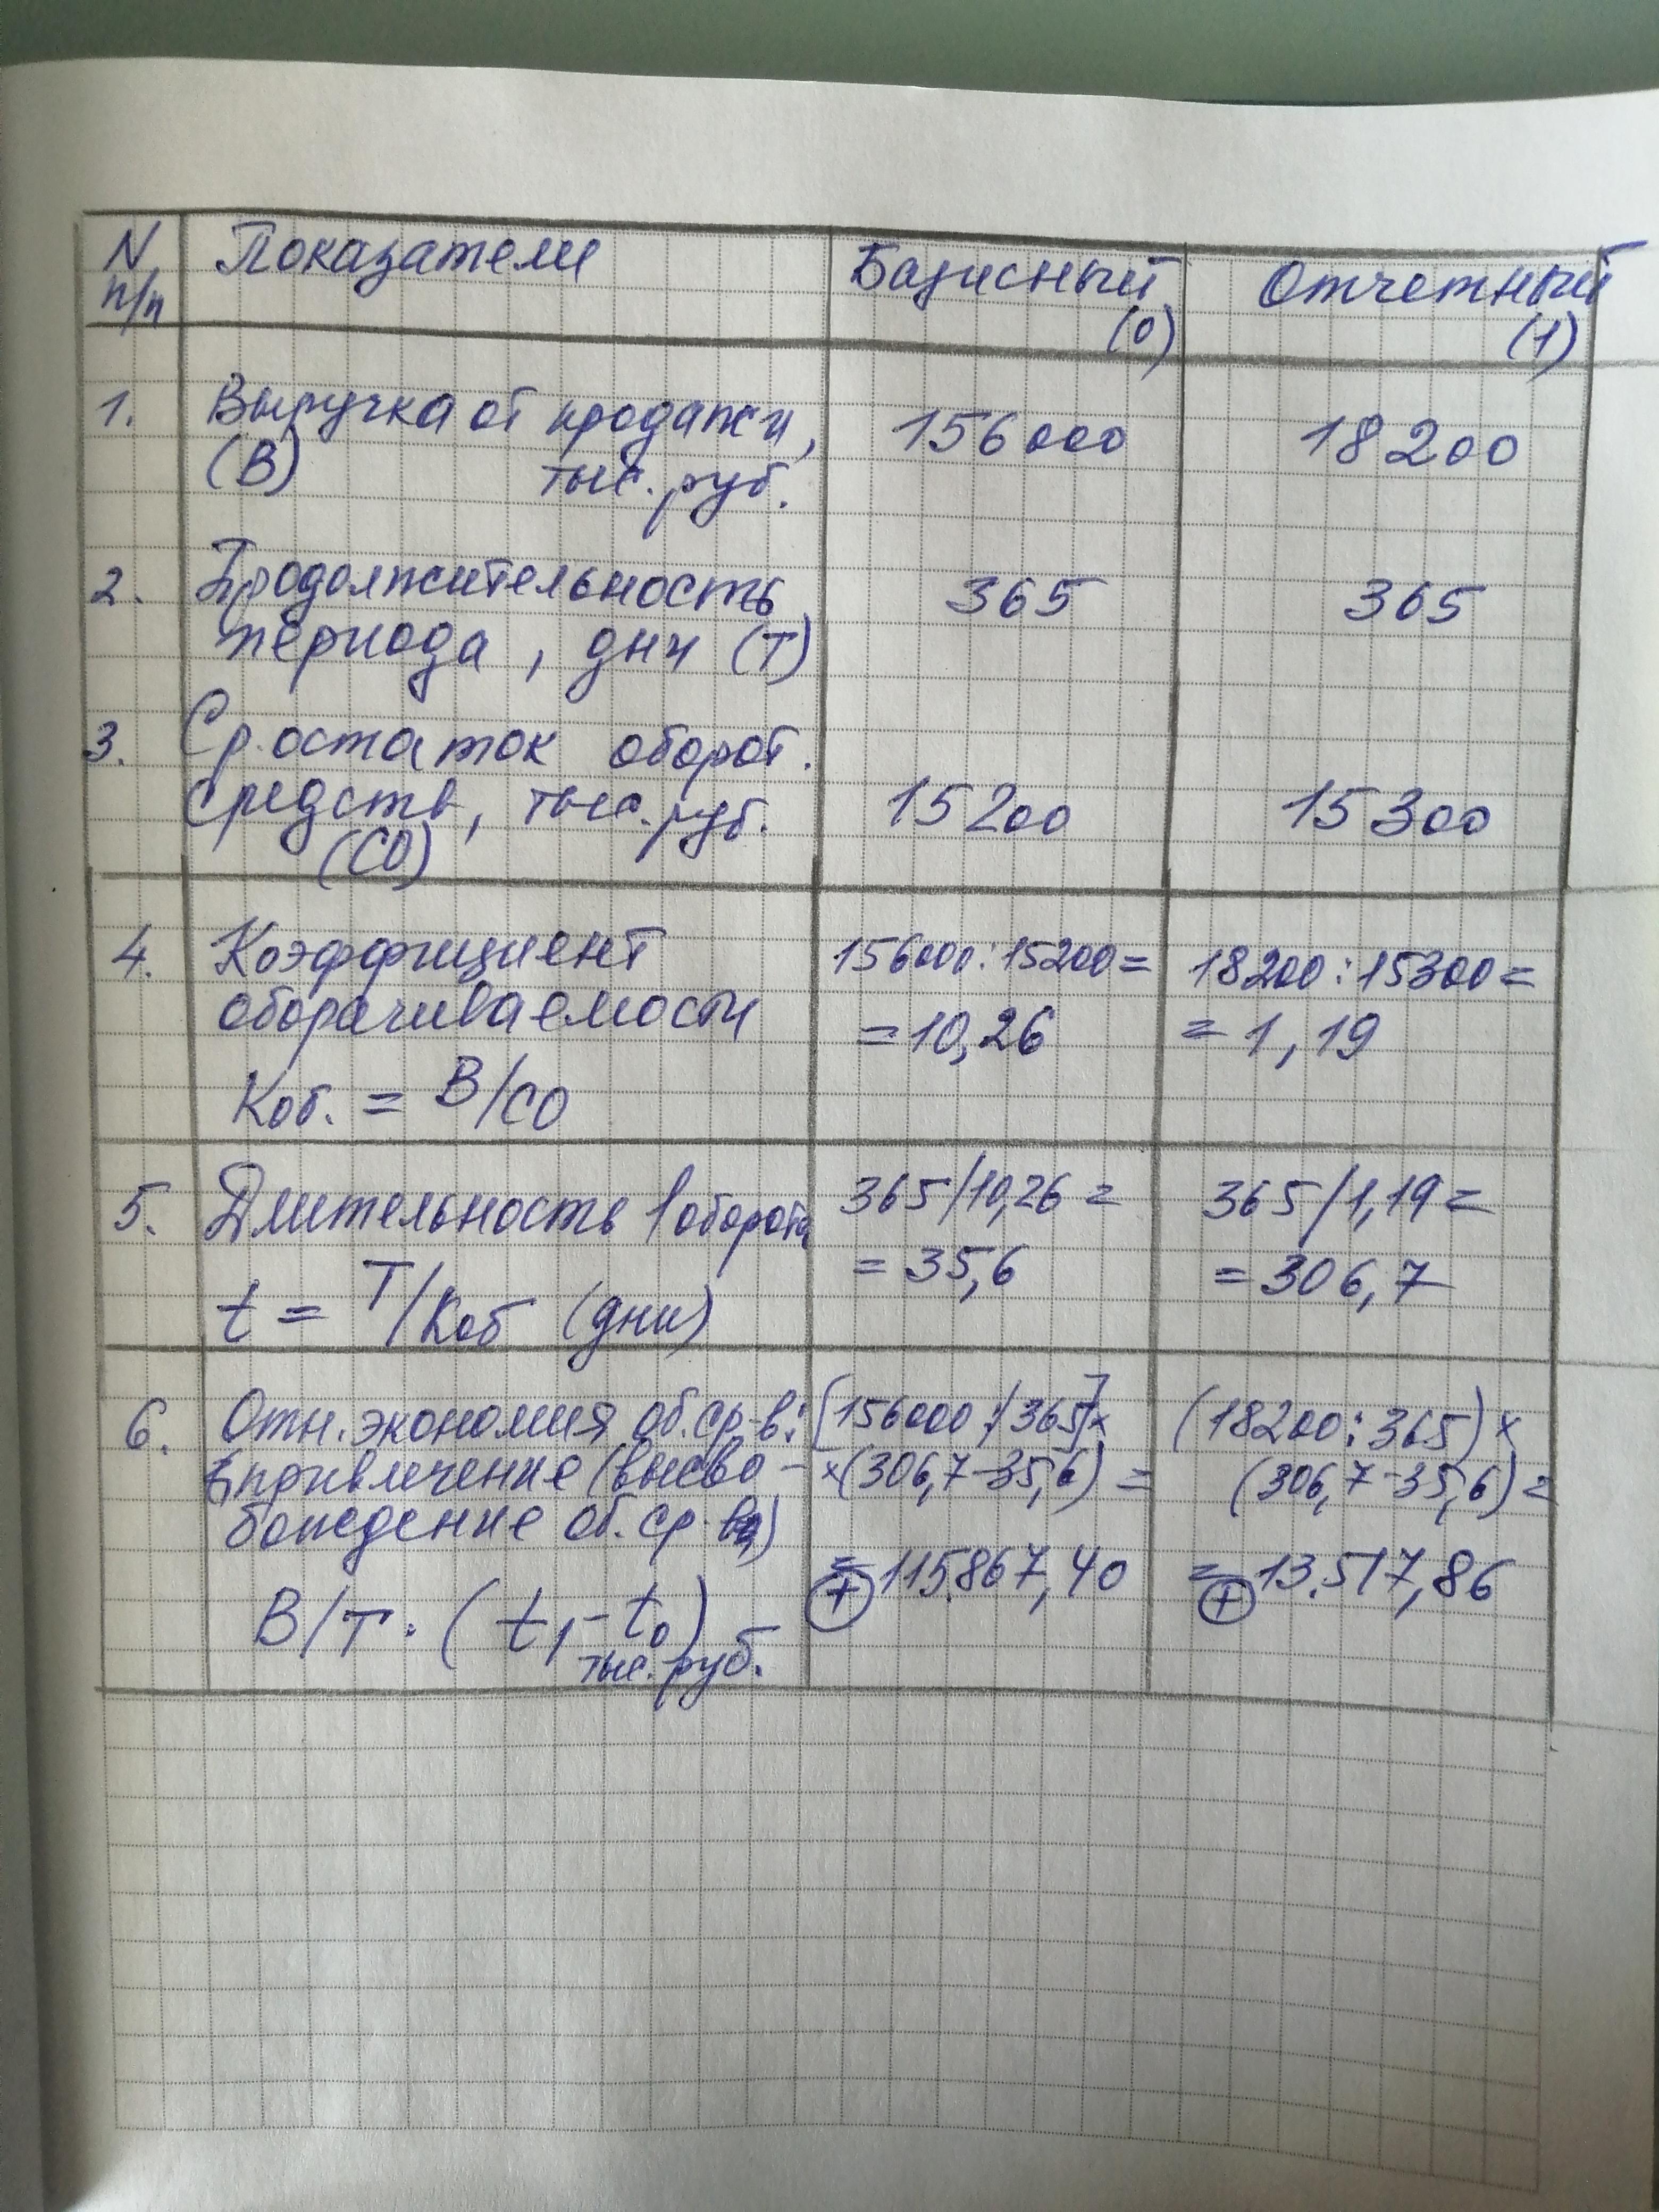 N п/п Показатели Базисный (0) Отчетный (1)
1. Выручка от продажи, 156000 18200
(В) тыс. руб.
2. Продолжительность 365 365
периода, дни (Т)
3. Ср. остаток оборот.
средств, тыс. руб. 15200 15300
(СО)
4. Коэффициент 156000:15200= 18200:15300=
оборачиваемости =10,26 =1,19
Коб. = В/СО
5. Длительность 1 оборота 365/10,26= 365/1,19=
t = Т/Коб (дни) =35,6 =306,7
6. Отн. экономия об.ср-в: [156000:365]× (18200:365)×
привлечение (высво- ×(306,7-35,6)= (306,7-35,6)=
бождение об.ср.) = + 115.867,40 = + 13.517,86
В/Т · (t₁ - t₀)
тыс. руб.